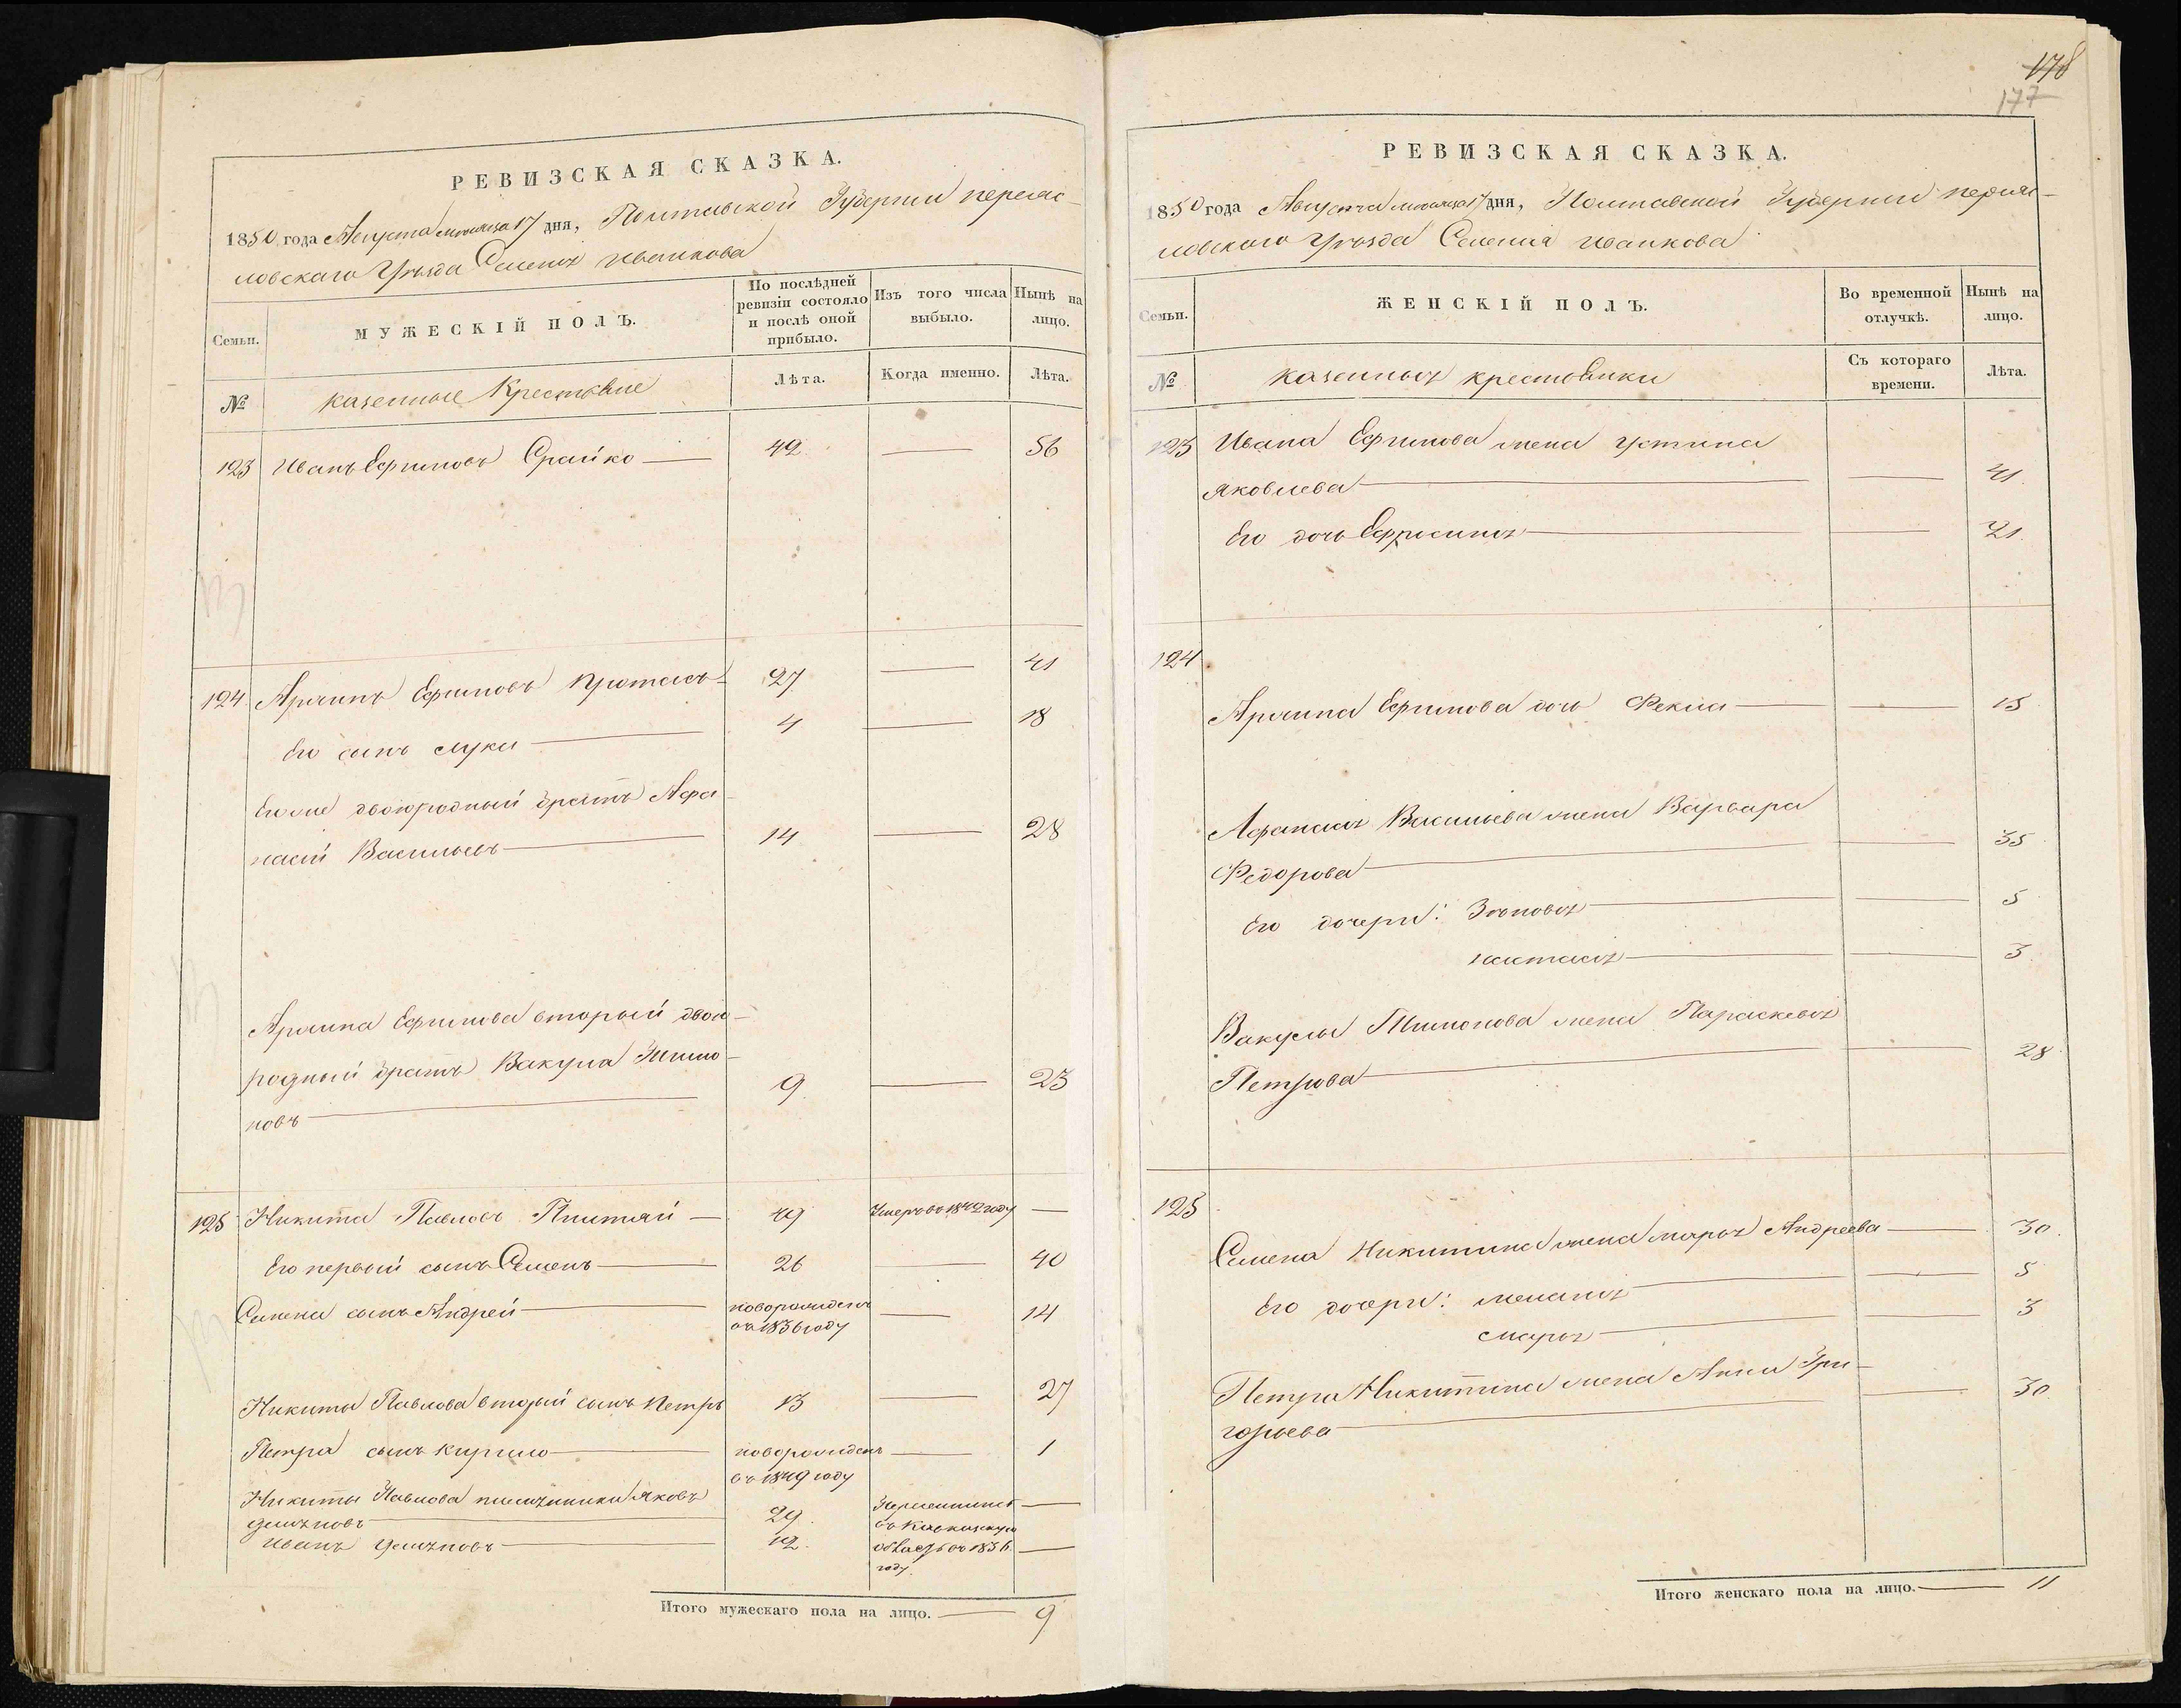 РЕВИЗСКАЯ СКАЗКА.
1850 года Августа месяца 17 дня, Полтавской Губернии переяс-
ловскаго Уѣзда Селенія иванкова
Семьи.
МУЖЕСКІЙ ПОЛЪ.
По послѣдней ревизіи состояло и послѣ оной прибыло.
Изъ того числа выбыло.
Нынѣ на лицо.
№
казенные Крестьяне
Лѣта.
Когда именно.
Лѣта.
123 Иванъ Ефимовъ 49 — 56
124 Ефимовъ 27 — 41
Его сынъ лука — 4 — 18
Его же двоюродный братъ Афа-
насій Васильевъ — 14 — 28
Ефимова вторый двою-
родный братъ Вакула Тимо-
новъ — 9 — 23
125 Никита Павловъ — 49 Умеръ въ 1842 году —
Его первый сынъ Семенъ — 26 — 40
Семена сынъ Андрей — новорожденъ въ 1836 году — 14
Никиты Павлова вторый сынъ петръ 13 — 27
Петра сынъ кирило — новорожденъ въ 1849 году — 1
Никиты Павлова племянники яковъ
демяновъ — 29.
иванъ демяновъ — 12.
въ Кавказскую область въ 1836 году. —
Итого мужескаго пола на лицо. — 9
178
177
РЕВИЗСКАЯ СКАЗКА.
1850 года Августа месяца 17 дня, Полтавской Губернии переяс-
ловскаго Уѣзда Селенія иванкова
Семьи.
ЖЕНСКІЙ ПОЛЪ.
Во временной отлучкѣ.
Нынѣ на лицо.
№
казенныя крестьянки
Съ котораго времени.
Лѣта.
123 Ивана Ефимова жена устина
яковлева — — 41.
Его дочь Ефросинія — — 21.
124
Ефимова дочь Фекла — — 15
Афанасія Васильева жена Варвара
Федорова — — 35
Его дочери: Зѣновія — — 5
настасія — — 3.
Вакулы Тимонова жена Параскевія
Петрова — — 28
125
Семена Никитина жена марія Андреева — 30.
Его дочери: меланія — — 5
марія — — 3
Петра Никитина жена Анна Гри-
горьева — — 30.
Итого женскаго пола на лицо. — 11